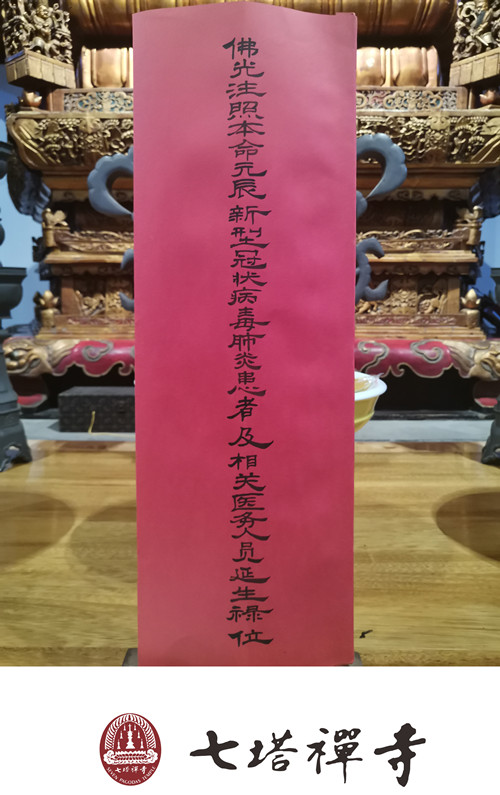 佛光注照本命元辰新型冠状病毒肺炎患者及相关医务人员延生禄位
七塔禪寺
SEVEN PAGODAS TEMPLE
七塔禅寺